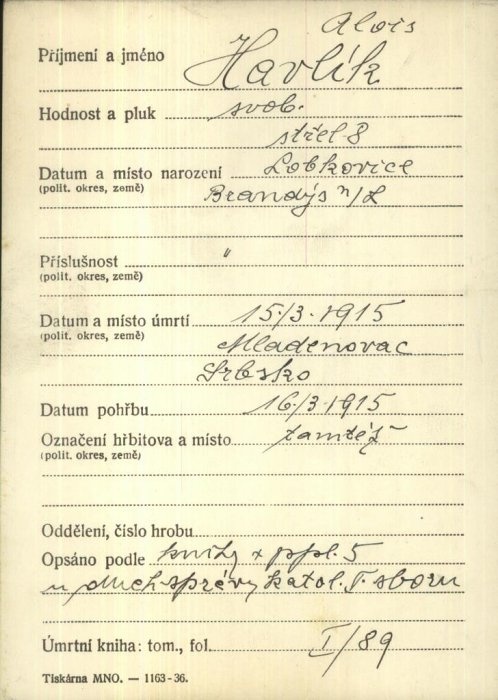 Alois
Příjmení a jméno Havlík
Hodnost a pluk svob.
střel. 8
Datum a místo narození Lobkovice
(polit. okres, země) Brandýs n/L
Příslušnost "
(polit. okres, země)
Datum a místo úmrtí 15./3. 1915
(polit. okres, země) Mladenovac
Srbsko
Datum pohřbu 16/3. 1915
Označení hřbitova a místo tamtéž
(polit. okres, země)
Oddělení, číslo hrobu
Opsáno podle knihy ppl. 5
u duch. správy katol. sboru
Úmrtní kniha: tom., fol. I/89
Tiskárna MNO. — 1163-36.